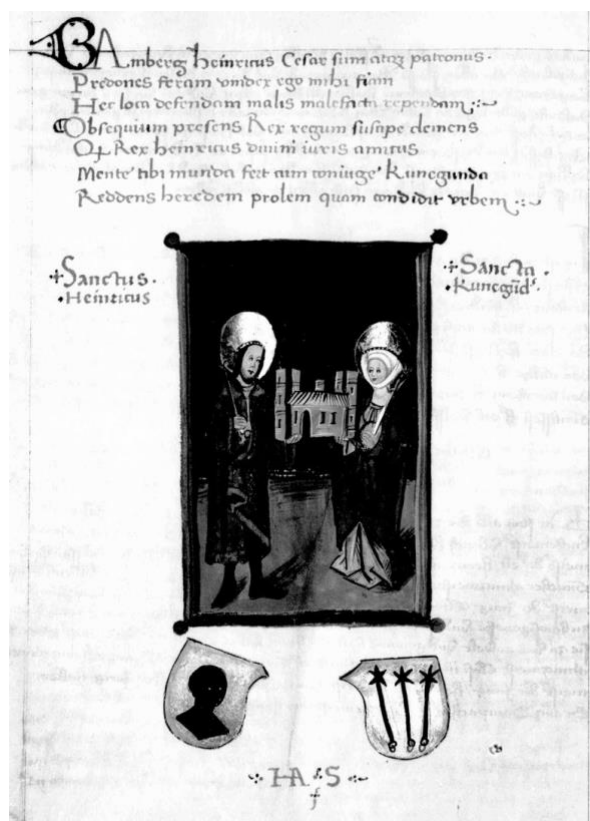 BAmberg heinricus Cesar sum atqz patronus·
Predones feram vindex ego mihi
Hec loca defendam malis malefacta rependam
Obsequium presens Rex regum susipe clemens
Rex heinricus divini iuris amicus
Mente tibi munda fecit cum coniuge Kunegunda
Reddens heredem prolem quam condidit vrbem
Sanctus·
Heinricus
Sancta·
Kunegūdˢ·
HA·S
f